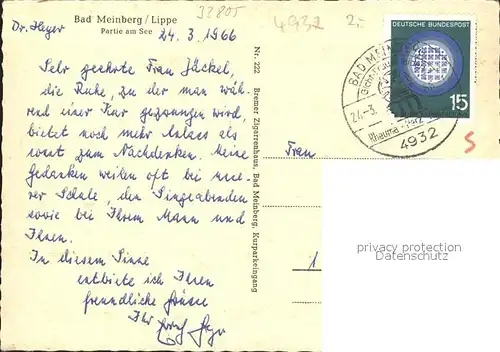 Dr. Heyer
Bad Meinberg / Lippe
Partie am See
24. 3. 1966
32805
4932
2,-
Sehr geehrte Frau Jäckel,
die Ruhe, zu der man wäh-
rend einer Kur gezwungen wird,
bietet noch mehr Anlass als
sonst zum Nachdenken. Meine
Gedanken weilen oft bei unse-
rer Schule, den Singeabenden
sowie bei Ihrem Mann und
Ihnen.
In diesem Sinne
entbiete ich Ihnen
freundliche Grüsse
Ihr
Nr. 222 Bremer Zigarrenhaus, Bad Meinberg, Kurparkeingang
DEUTSCHE BUNDESPOST
15
BAD MEINBERG
24.-3.
Rheuma
4932
Frau
1
S
privacy protection
Datenschutz